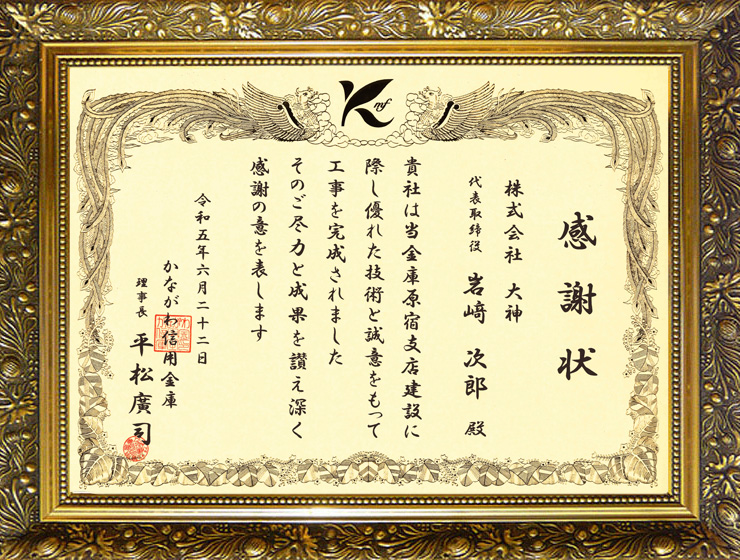 K
nf
感謝状
株式会社 大神
代表取締役 岩﨑 次郎 殿
貴社は当金庫原宿支店建設に
際し優れた技術と誠意をもって
工事を完成されました
そのご尽力と成果を讃え深く
感謝の意を表します
令和五年六月二十二日
かながわ信用金庫
理事長 平松廣司